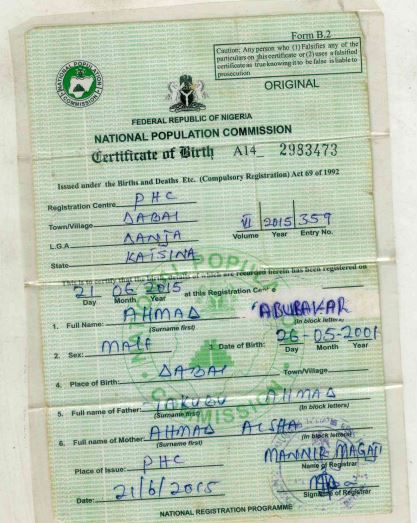 Form B.2
Caution: Any person who (1) Falsifies any of the
particulars on this certificate or (2) uses a falsified
certificate as true knowing it to be false is liable to
prosecution
NATIONAL POPULATION COMMISSION
ORIGINAL
FEDERAL REPUBLIC OF NIGERIA
NATIONAL POPULATION COMMISSION
Certificate of Birth A14_ 2983473
Issued under the Births and Deaths Etc. (Compulsory Registration) Act 69 of 1992
Registration Centre PHC
Town/Village DABAI VI 2015 359
Volume Year Entry No.
L.G.A DANJA
State KATSINA
This is to certify that the birth details of which are recorded herein has been registered on
21 06 2015 at this Registration Centre
Day Month Year
1. Full Name: AHMAD ABUBAKAR
(Surname first) (In block letters)
2. Sex: MALE 3. Date of Birth: 26-05-2001
Day Month Year
4. Place of Birth: DABAI Town/Village
5. Full name of Father: YAKUBU AHMAD
(Surname first) (In block letters)
6. Full name of Mother: AHMAD AISHA
(Surname first) (In block letters)
Place of Issue: PHC MANNIR MAGAJI
Name of Registrar
Date: 21/6/2015
Signature of Registrar
NATIONAL REGISTRATION PROGRAMME